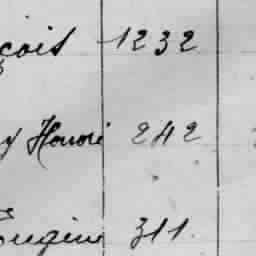 çois 1232
y Honoré 242
Eugène 311.